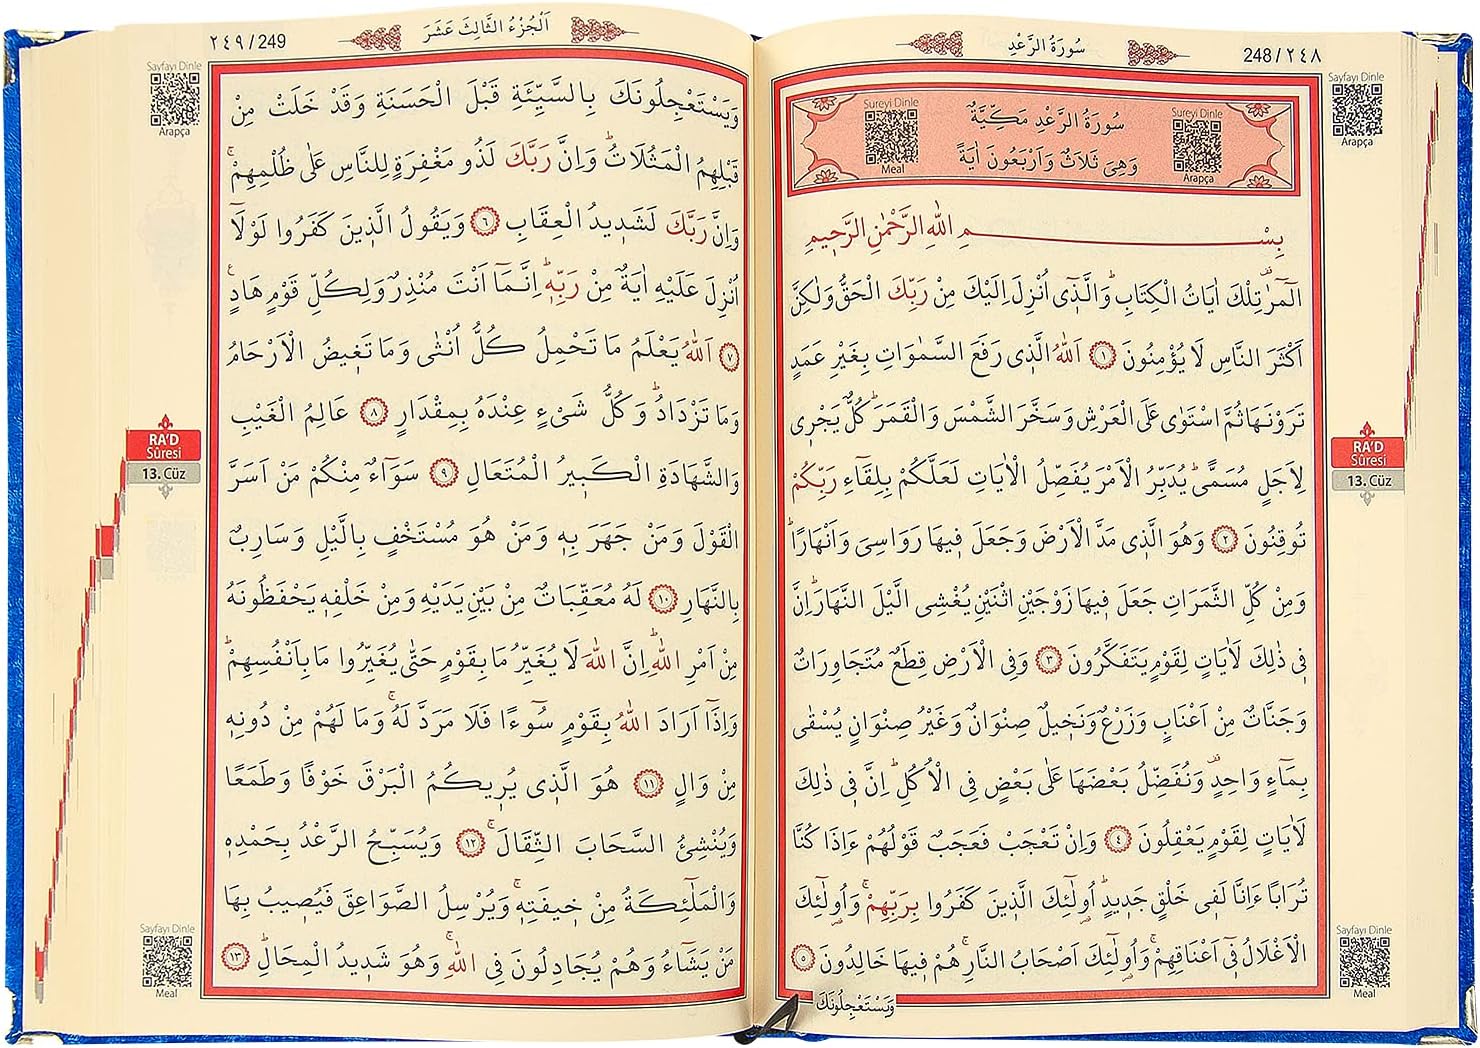 248/٢٤٨
سُورَةُ الرَّعْدِ
Sayfayı Dinle
Arapça
Sureyi Dinle
Arapça
سُورَةُ الرَّعْدِ مَكِّيَّةٌ
وَهِىَ ثَلَاثٌ وَاَرْبَعُونَ اٰيَةً
Sureyi Dinle
Meal
بِسْمِ اللّٰهِ الرَّحْمٰنِ الرَّحٖيمِ
الٓمٓرٰ تِلْكَ اٰيَاتُ الْكِتَابِؕ وَالَّذٖٓى اُنْزِلَ اِلَيْكَ مِنْ رَبِّكَ الْحَقُّ وَلٰكِنَّ
اَكْثَرَ النَّاسِ لَا يُؤْمِنُونَ ﴿١﴾ اَللّٰهُ الَّذٖى رَفَعَ السَّمٰوَاتِ بِغَيْرِ عَمَدٍ
تَرَوْنَهَا ثُمَّ اسْتَوٰى عَلَى الْعَرْشِ وَسَخَّرَ الشَّمْسَ وَالْقَمَرَؕ كُلٌّ يَجْرٖى
لِاَجَلٍ مُسَمًّىؕ يُدَبِّرُ الْاَمْرَ يُفَصِّلُ الْاٰيَاتِ لَعَلَّكُمْ بِلِقَٓاءِ رَبِّكُمْ
تُوقِنُونَ ﴿٢﴾ وَهُوَ الَّذٖى مَدَّ الْاَرْضَ وَجَعَلَ فٖيهَا رَوَاسِىَ وَاَنْهَارًاؕ
وَمِنْ كُلِّ الثَّمَرَاتِ جَعَلَ فٖيهَا زَوْجَيْنِ اثْنَيْنِ يُغْشِى الَّيْلَ النَّهَارَؕ اِنَّ
فٖى ذٰلِكَ لَاٰيَاتٍ لِقَوْمٍ يَتَفَكَّرُونَ ﴿٣﴾ وَفِى الْاَرْضِ قِطَعٌ مُتَجَاوِرَاتٌ
وَجَنَّاتٌ مِنْ اَعْنَابٍ وَزَرْعٌ وَنَخٖيلٌ صِنْوَانٌ وَغَيْرُ صِنْوَانٍ يُسْقٰى
بِمَٓاءٍ وَاحِدٍ وَنُفَضِّلُ بَعْضَهَا عَلٰى بَعْضٍ فِى الْاُكُلِؕ اِنَّ فٖى ذٰلِكَ
لَاٰيَاتٍ لِقَوْمٍ يَعْقِلُونَ ﴿٤﴾ وَاِنْ تَعْجَبْ فَعَجَبٌ قَوْلُهُمْ ءَاِذَا كُنَّا
تُرَابًا ءَاِنَّا لَفٖى خَلْقٍ جَدٖيدٍؕ اُولٰٓئِكَ الَّذٖينَ كَفَرُوا بِرَبِّهِمْۚ وَاُولٰٓئِكَ
الْاَغْلَالُ فٖٓى اَعْنَاقِهِمْۚ وَاُولٰٓئِكَ اَصْحَابُ النَّارِۚ هُمْ فٖيهَا خَالِدُونَ ﴿٥﴾
وَيَسْتَعْجِلُونَكَ
RA'D
Sûresi
13. Cüz
Sayfayı Dinle
Meal
اَلْجُزْءُ الثَّالِثَ عَشَرَ
٢٤٩/249
Sayfayı Dinle
Arapça
وَيَسْتَعْجِلُونَكَ بِالسَّيِّئَةِ قَبْلَ الْحَسَنَةِ وَقَدْ خَلَتْ مِنْ
قَبْلِهِمُ الْمَثُلَاتُؕ وَاِنَّ رَبَّكَ لَذُو مَغْفِرَةٍ لِلنَّاسِ عَلٰى ظُلْمِهِمْۚ
وَاِنَّ رَبَّكَ لَشَدٖيدُ الْعِقَابِ ﴿٦﴾ وَيَقُولُ الَّذٖينَ كَفَرُوا لَوْلَٓا
اُنْزِلَ عَلَيْهِ اٰيَةٌ مِنْ رَبِّهٖؕ اِنَّمَٓا اَنْتَ مُنْذِرٌ وَلِكُلِّ قَوْمٍ هَادٍࣖ
﴿٧﴾ اَللّٰهُ يَعْلَمُ مَا تَحْمِلُ كُلُّ اُنْثٰى وَمَا تَغٖيضُ الْاَرْحَامُ
وَمَا تَزْدَادُؕ وَكُلُّ شَىْءٍ عِنْدَهُ بِمِقْدَارٍ ﴿٨﴾ عَالِمُ الْغَيْبِ
وَالشَّهَادَةِ الْكَبٖيرُ الْمُتَعَالِ ﴿٩﴾ سَوَٓاءٌ مِنْكُمْ مَنْ اَسَرَّ
الْقَوْلَ وَمَنْ جَهَرَ بِهٖ وَمَنْ هُوَ مُسْتَخْفٍ بِالَّيْلِ وَسَارِبٌ
بِالنَّهَارِ ﴿١٠﴾ لَهُ مُعَقِّبَاتٌ مِنْ بَيْنِ يَدَيْهِ وَمِنْ خَلْفِهٖ يَحْفَظُونَهُ
مِنْ اَمْرِ اللّٰهِؕ اِنَّ اللّٰهَ لَا يُغَيِّرُ مَا بِقَوْمٍ حَتّٰى يُغَيِّرُوا مَا بِاَنْفُسِهِمْؕ
وَاِذَٓا اَرَادَ اللّٰهُ بِقَوْمٍ سُٓوءًا فَلَا مَرَدَّ لَهُۚ وَمَا لَهُمْ مِنْ دُونِهٖ
مِنْ وَالٍ ﴿١١﴾ هُوَ الَّذٖى يُرٖيكُمُ الْبَرْقَ خَوْفًا وَطَمَعًا
وَيُنْشِئُ السَّحَابَ الثِّقَالَۚ ﴿١٢﴾ وَيُسَبِّحُ الرَّعْدُ بِحَمْدِهٖ
وَالْمَلٰٓئِكَةُ مِنْ خٖيفَتِهٖۚ وَيُرْسِلُ الصَّوَاعِقَ فَيُصٖيبُ بِهَا
مَنْ يَشَٓاءُ وَهُمْ يُجَادِلُونَ فِى اللّٰهِۚ وَهُوَ شَدٖيدُ الْمِحَالِؕ ﴿١٣﴾
RA'D
Sûresi
13. Cüz
Sayfayı Dinle
Meal